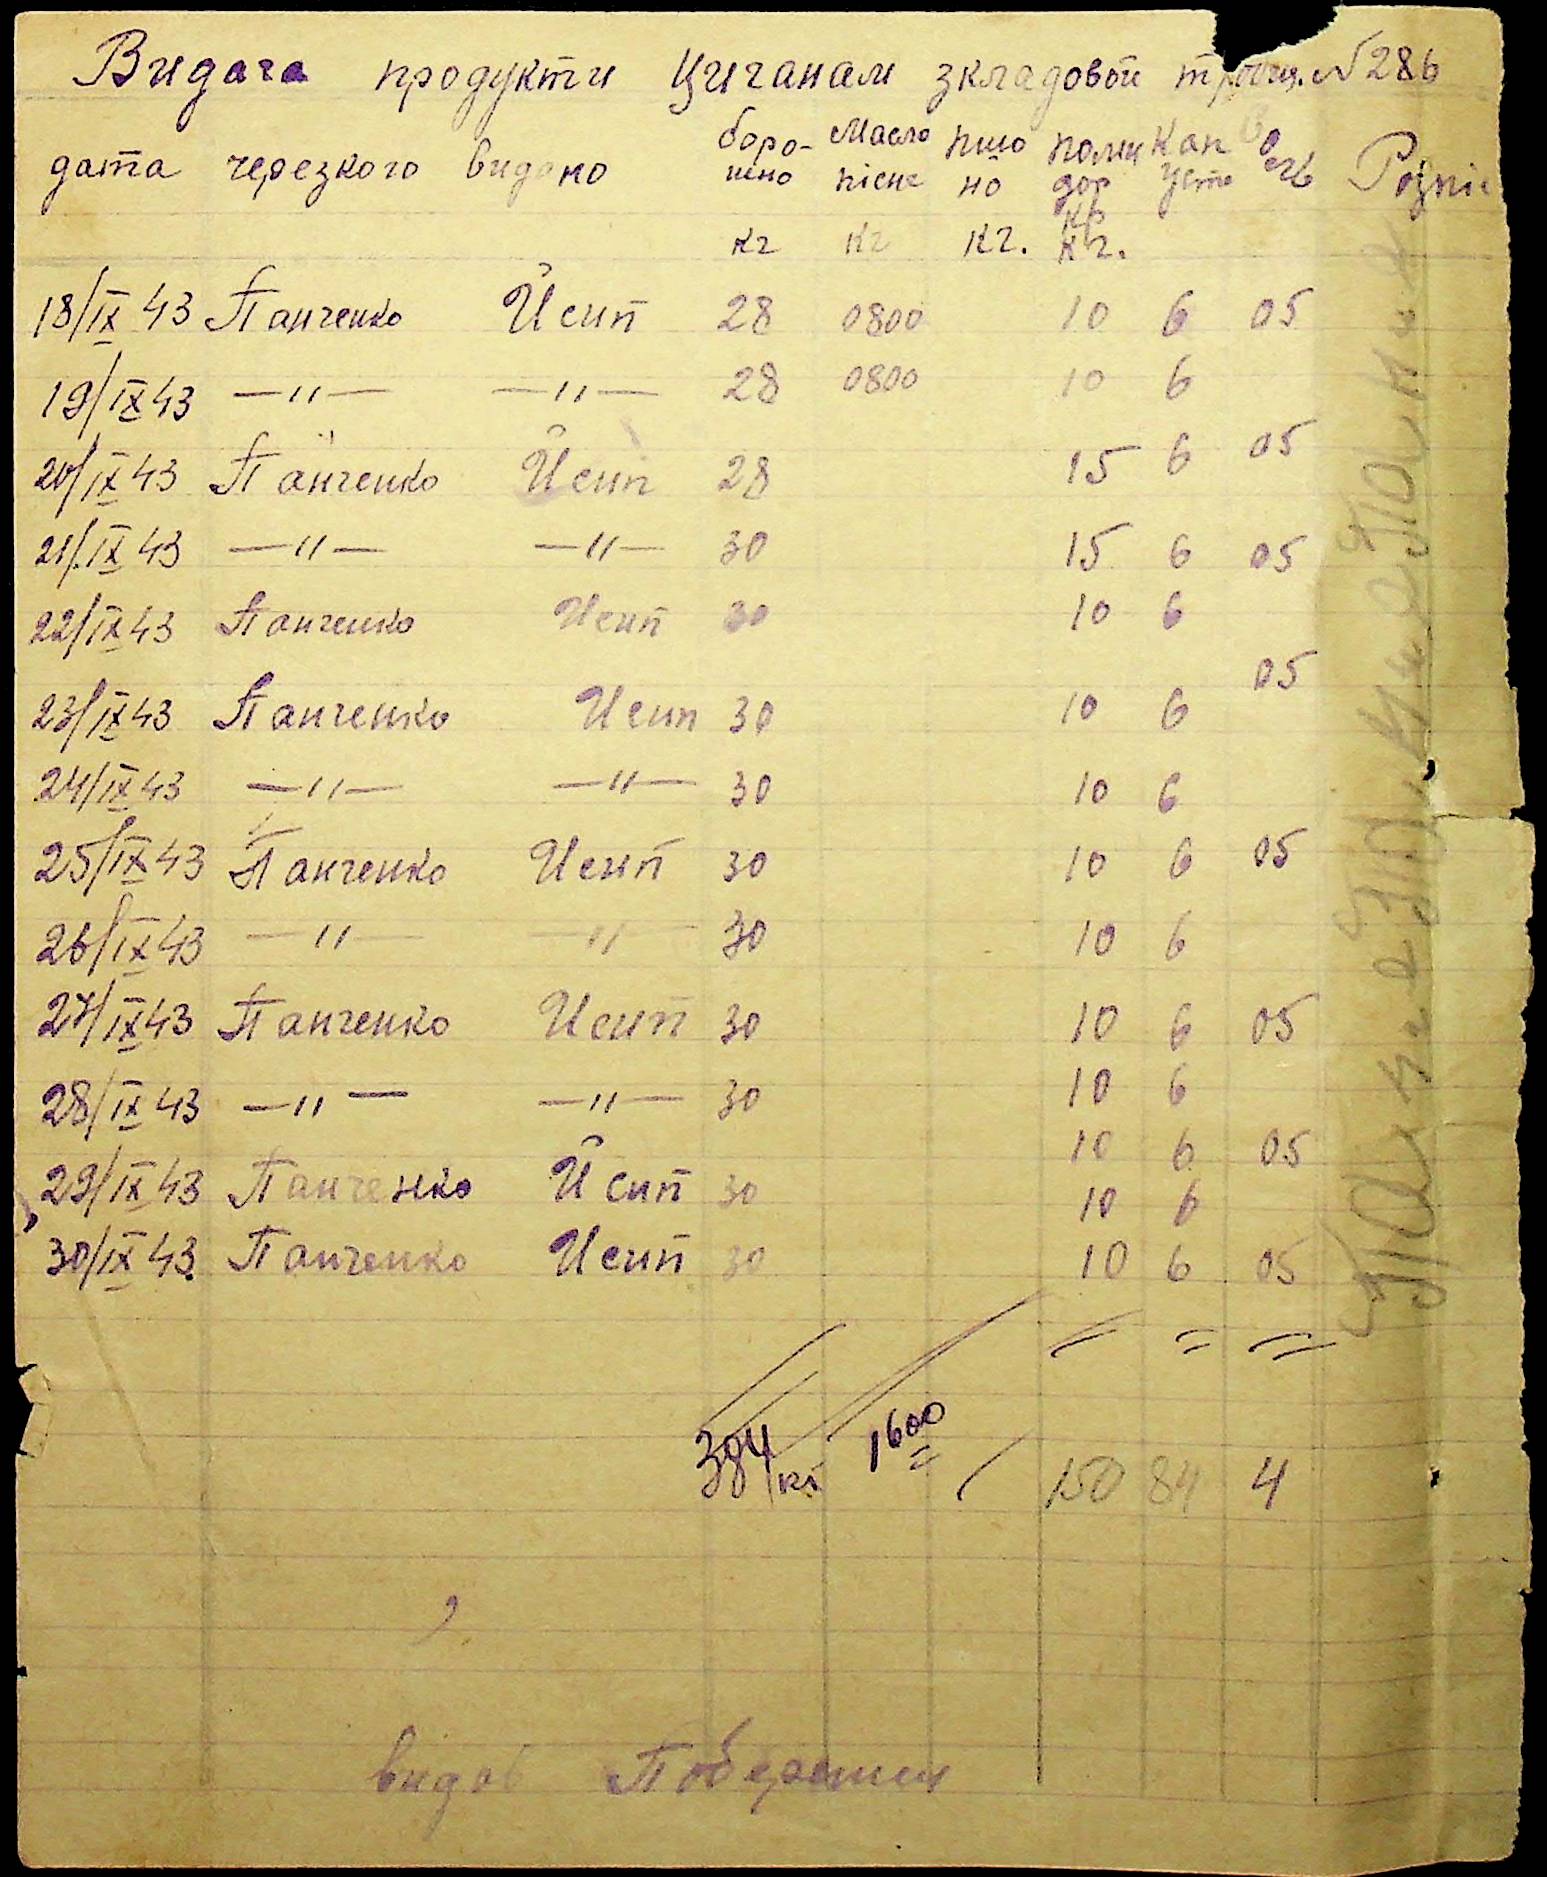 Видача продукти Циганам зкладовой № 286
дата через кого видано боро- Масло пшо поми Кап Розпіс
шно пісне но дор уста
кг кг кг. кг.
18/IX 43 Панченко Йсип 28 0800 10 6 05
19/IX 43 —〃— —〃— 28 0800 10 6
20/IX 43 Панченко Йсип 28 15 6 05
21/IX 43 —〃— —〃— 30 15 6 05
22/IX 43 Панченко Исип 30 10 6
23/IX 43 Панченко Исип 30 10 6 05
24/IX 43 —〃— —〃— 30 10 6
25/IX 43 Панченко Исип 30 10 6 05
26/IX 43 —〃— —〃— 30 10 6
27/IX 43 Панченко Исип 30 10 6 05
28/IX 43 —〃— —〃— 30 10 6
10 6 05
29/IX 43 Панченко Йсип 30 10 6
30/IX 43 Панченко Исип 30 10 6 05
384 кг 1600 150 84 4
видав